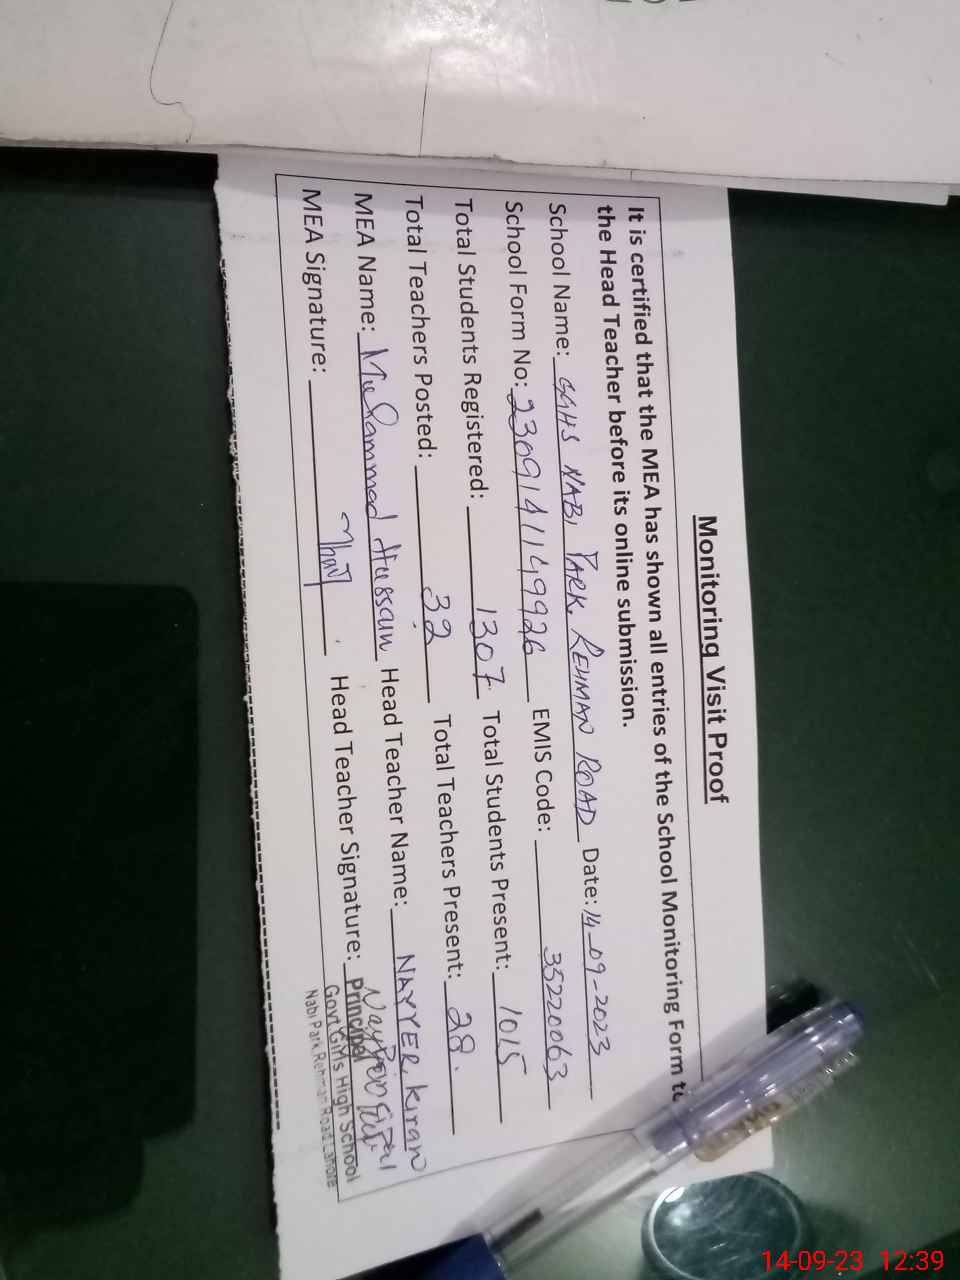 Monitoring Visit Proof
It is certified that the MEA has shown all entries of the School Monitoring Form to
the Head Teacher before its online submission.
School Name: GGHS NABI PARK REHMAN ROAD Date: 14-09-2023
School Form No: 2309141149926 EMIS Code: 35220063
Total Students Registered: 1307 Total Students Present: 1015
Total Teachers Posted: 32 Total Teachers Present: 28
MEA Name: Muhammad Hussain Head Teacher Name: NAYYER kiran
MEA Signature: Head Teacher Signature:
Principal
Govt Girls High School
Nabi Park Rehman Road Lahore
14-09-23 12:39